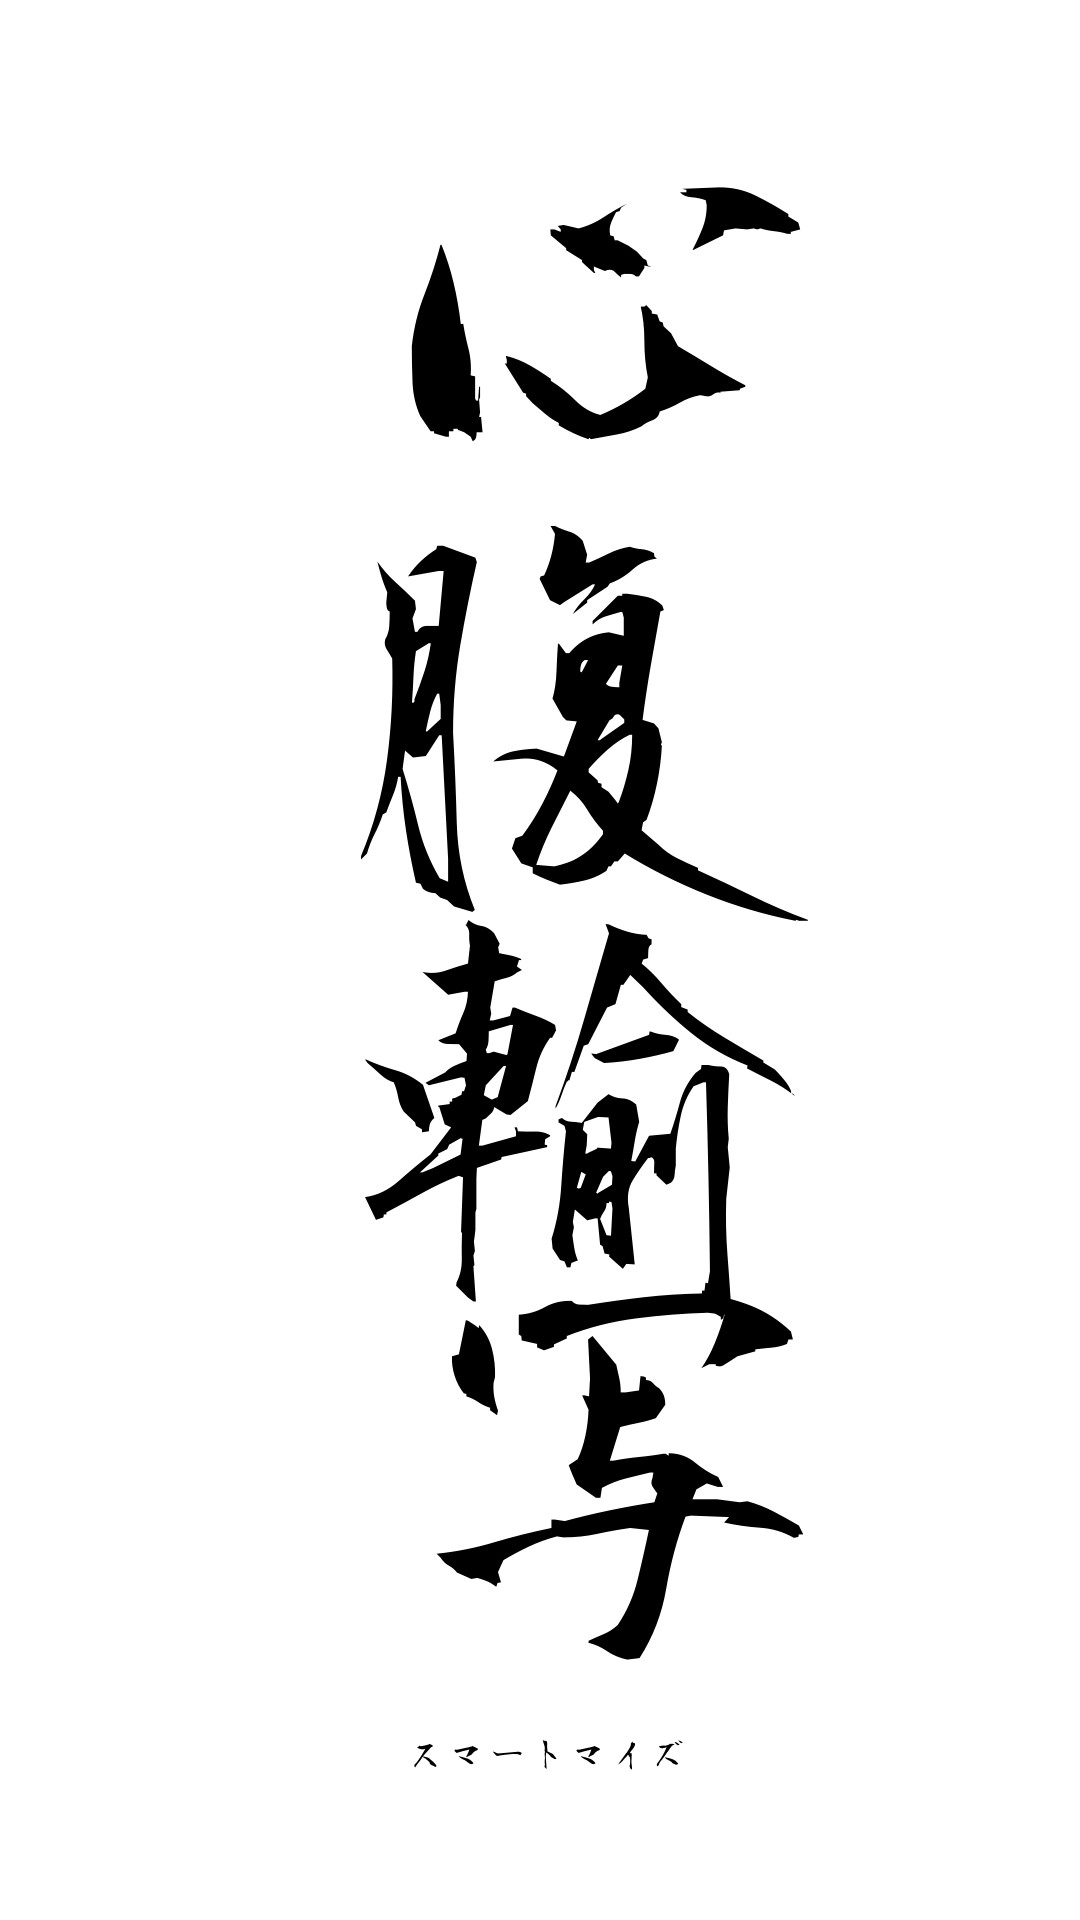 心腹輸写
スマートマイズ